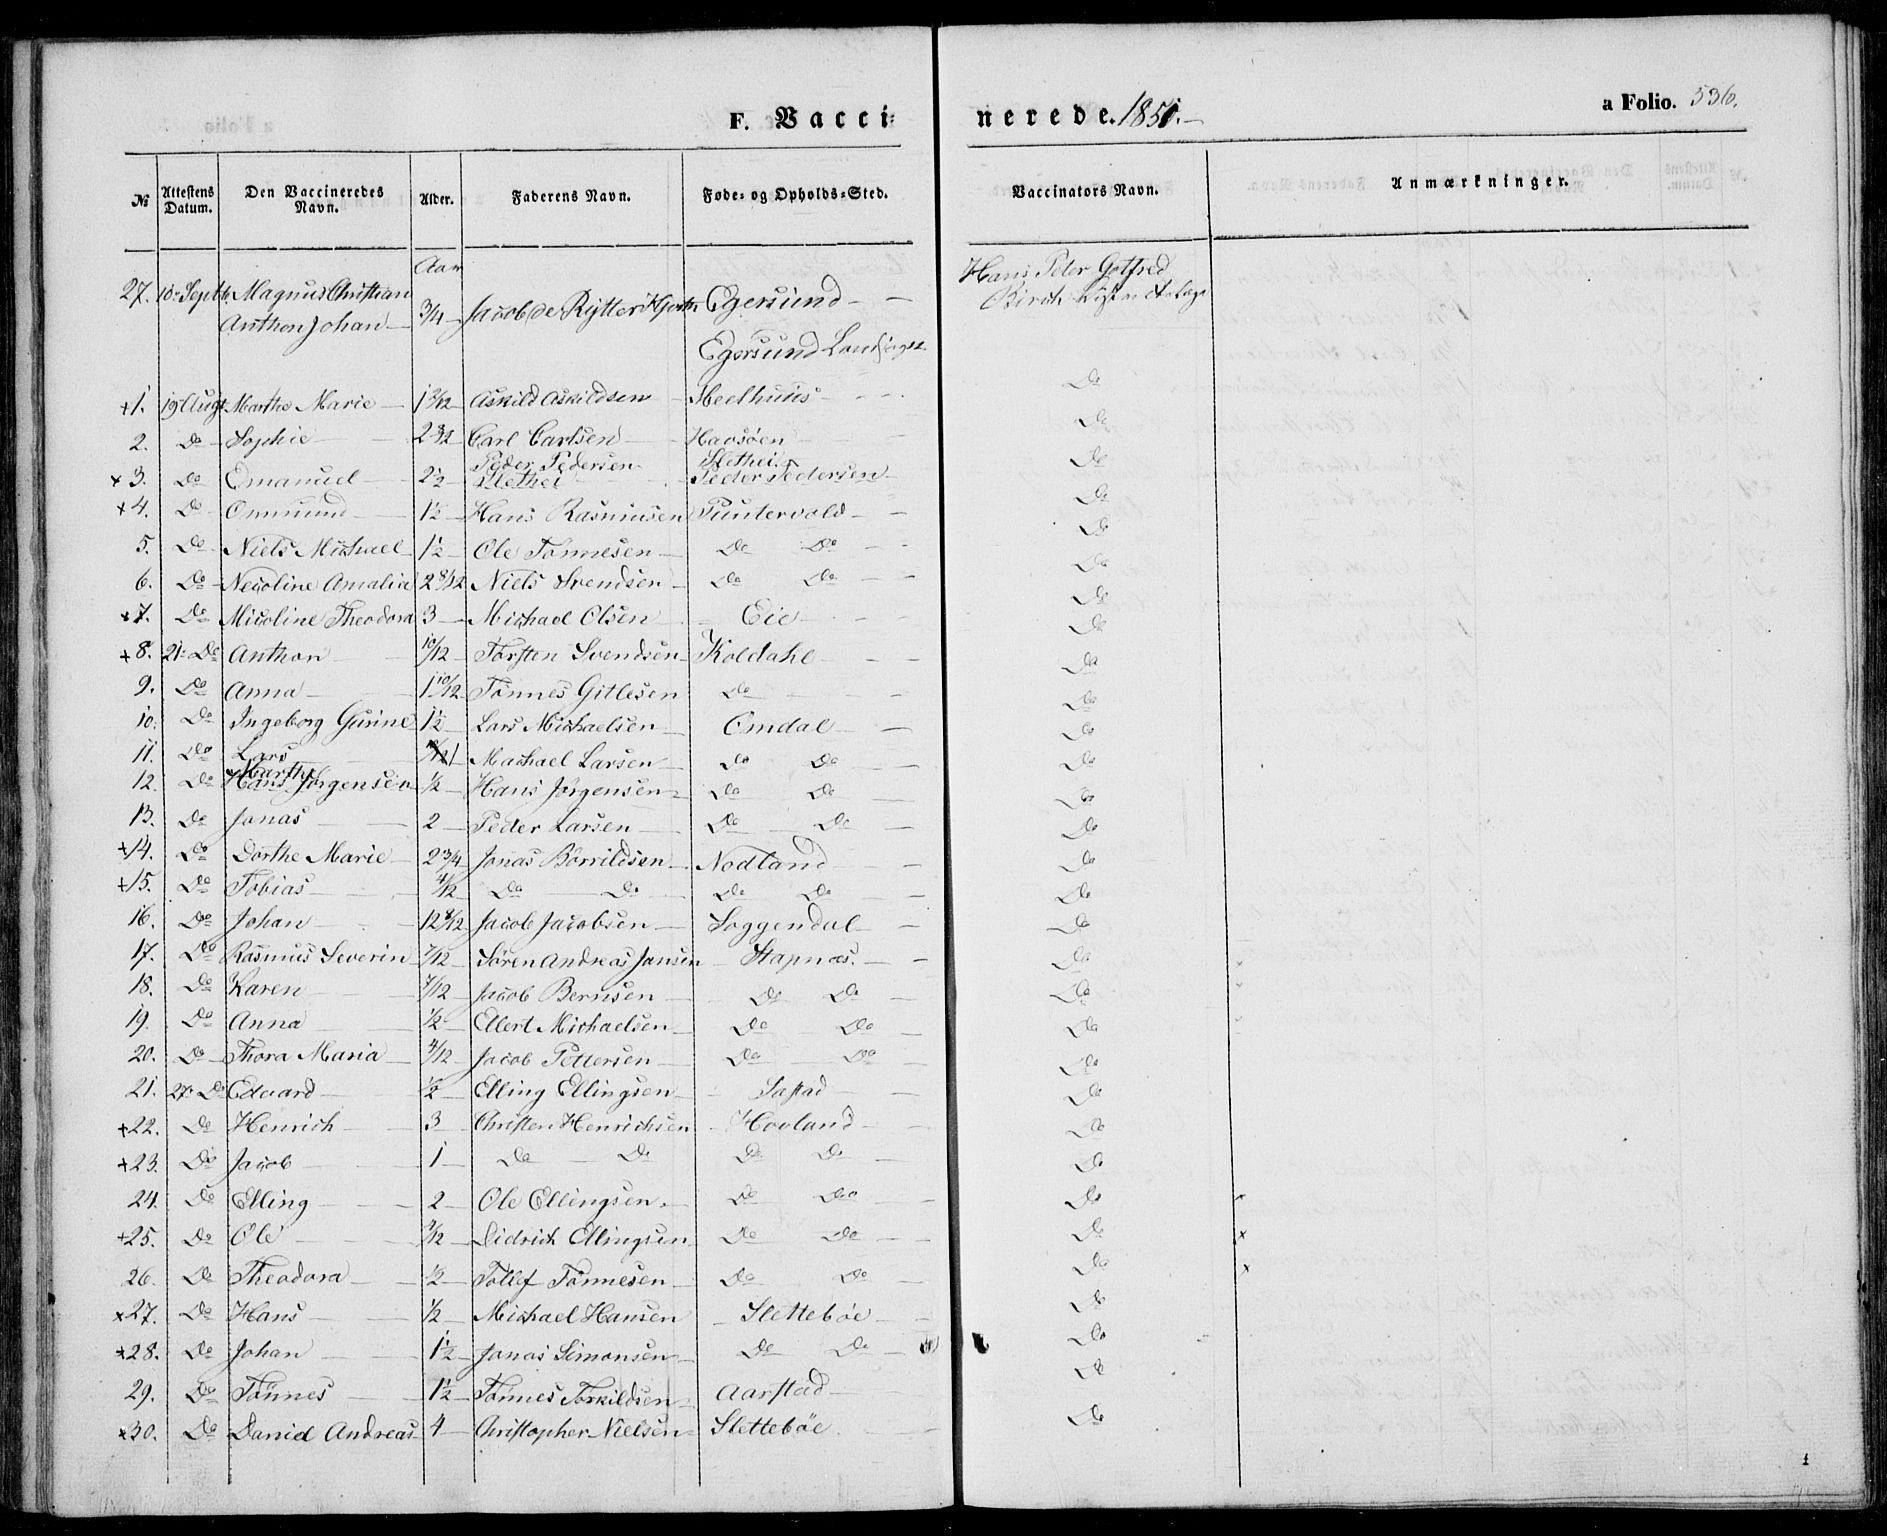 F. Vacci=
nerede. 1850.
a Folio. 536.
№ Attestens Datum. Den Vaccineredes Navn. Alder. Faderens Navn. Føde= og Opholds=Sted. Vaccinators Navn. Anmærkninger.
Aar
27. 10. Septb. Magnus Christian Anthon Johan 3/4 Jacob de Rytter Kjorth Egersund Hans Peter Gotfred Birch
Egersund Landsogn
+1. 19 Augt Marthe Marie 1 3/12 Askild Askildsen Meelhuus Do
2. Do Sophie 2 3/12 Carl Carlsen Havsøen Do
+3. Do Emanuel 2½ Peder Pedersen Slethei Slethei Peder Pedersen Do
+4. Do Ommund 1½ Hans Rasmusen Puntervold Do
5. Do Niels Michael 1½ Ole Tønnesen Do Do Do
6. Do Nicoline Amalia 2 8/12 Niels Svendsen Do Do Do
+7. Do Micoline Theodora 3 Michael Olsen Eie Do
+8. 21. Do Anthon 10/12 Torsten Svendsen Koldahl Do
9. Do Anna 1 10/12 Tønnes Gitlesen Do Do
10. Do Ingeborg Gurine 1½ Lars Michaelsen Omdal Do
11. Do Lars 1 Michael Larsen Do Do Do
12. Do Marthe Hans Jørgensen ½ Hans Jørgensen Do Do Do
13. Do Jonas 2 Peder Larsen Do Do Do
+14. Do Dorthe Marie 2 3/4 Jonas Børrildsen Nodland Do
+15. Do Tobias 4/12 Do Do Do Do Do
16. Do Johan 12 8/12 Jacob Jacobsen Soggendal Do
17. Do Rasmus Severin 7/12 Søren Andreas Jansen Stapnæs. Do
18. Do Karen 7/12 Jacob Berntsen Do Do Do
19. Do Anna ½ Ellert Michaelsen Do Do Do
20. Do Thora Maria 4/12 Jacob Pettersen Do Do Do
21. 27. Do Edvard ½ Elling Ellingsen Do
+22. Do Henrich 3 Christen Henrichsen Hovland Do
+23. Do Jacob 1 Do Do Do Do Do
24. Do Elling 2 Ole Ellingsen Do Do Do x
+25. Do Ole Didrich Ellingsen Do Do Do x
26. Do Theodora ½ Tollef Tønnesen Do Do Do x
x27. Do Hans ½ Michael Hansen Slettebøe Do
+28. Do Johan 1½ Jonas Simonsen Do Do Do
29. Do Tønnes 1½ Tønnes Torkildsen Aarstad Do
x30. Do Daniel Andreas 4 Christopher Nielsen Slettebøe Do